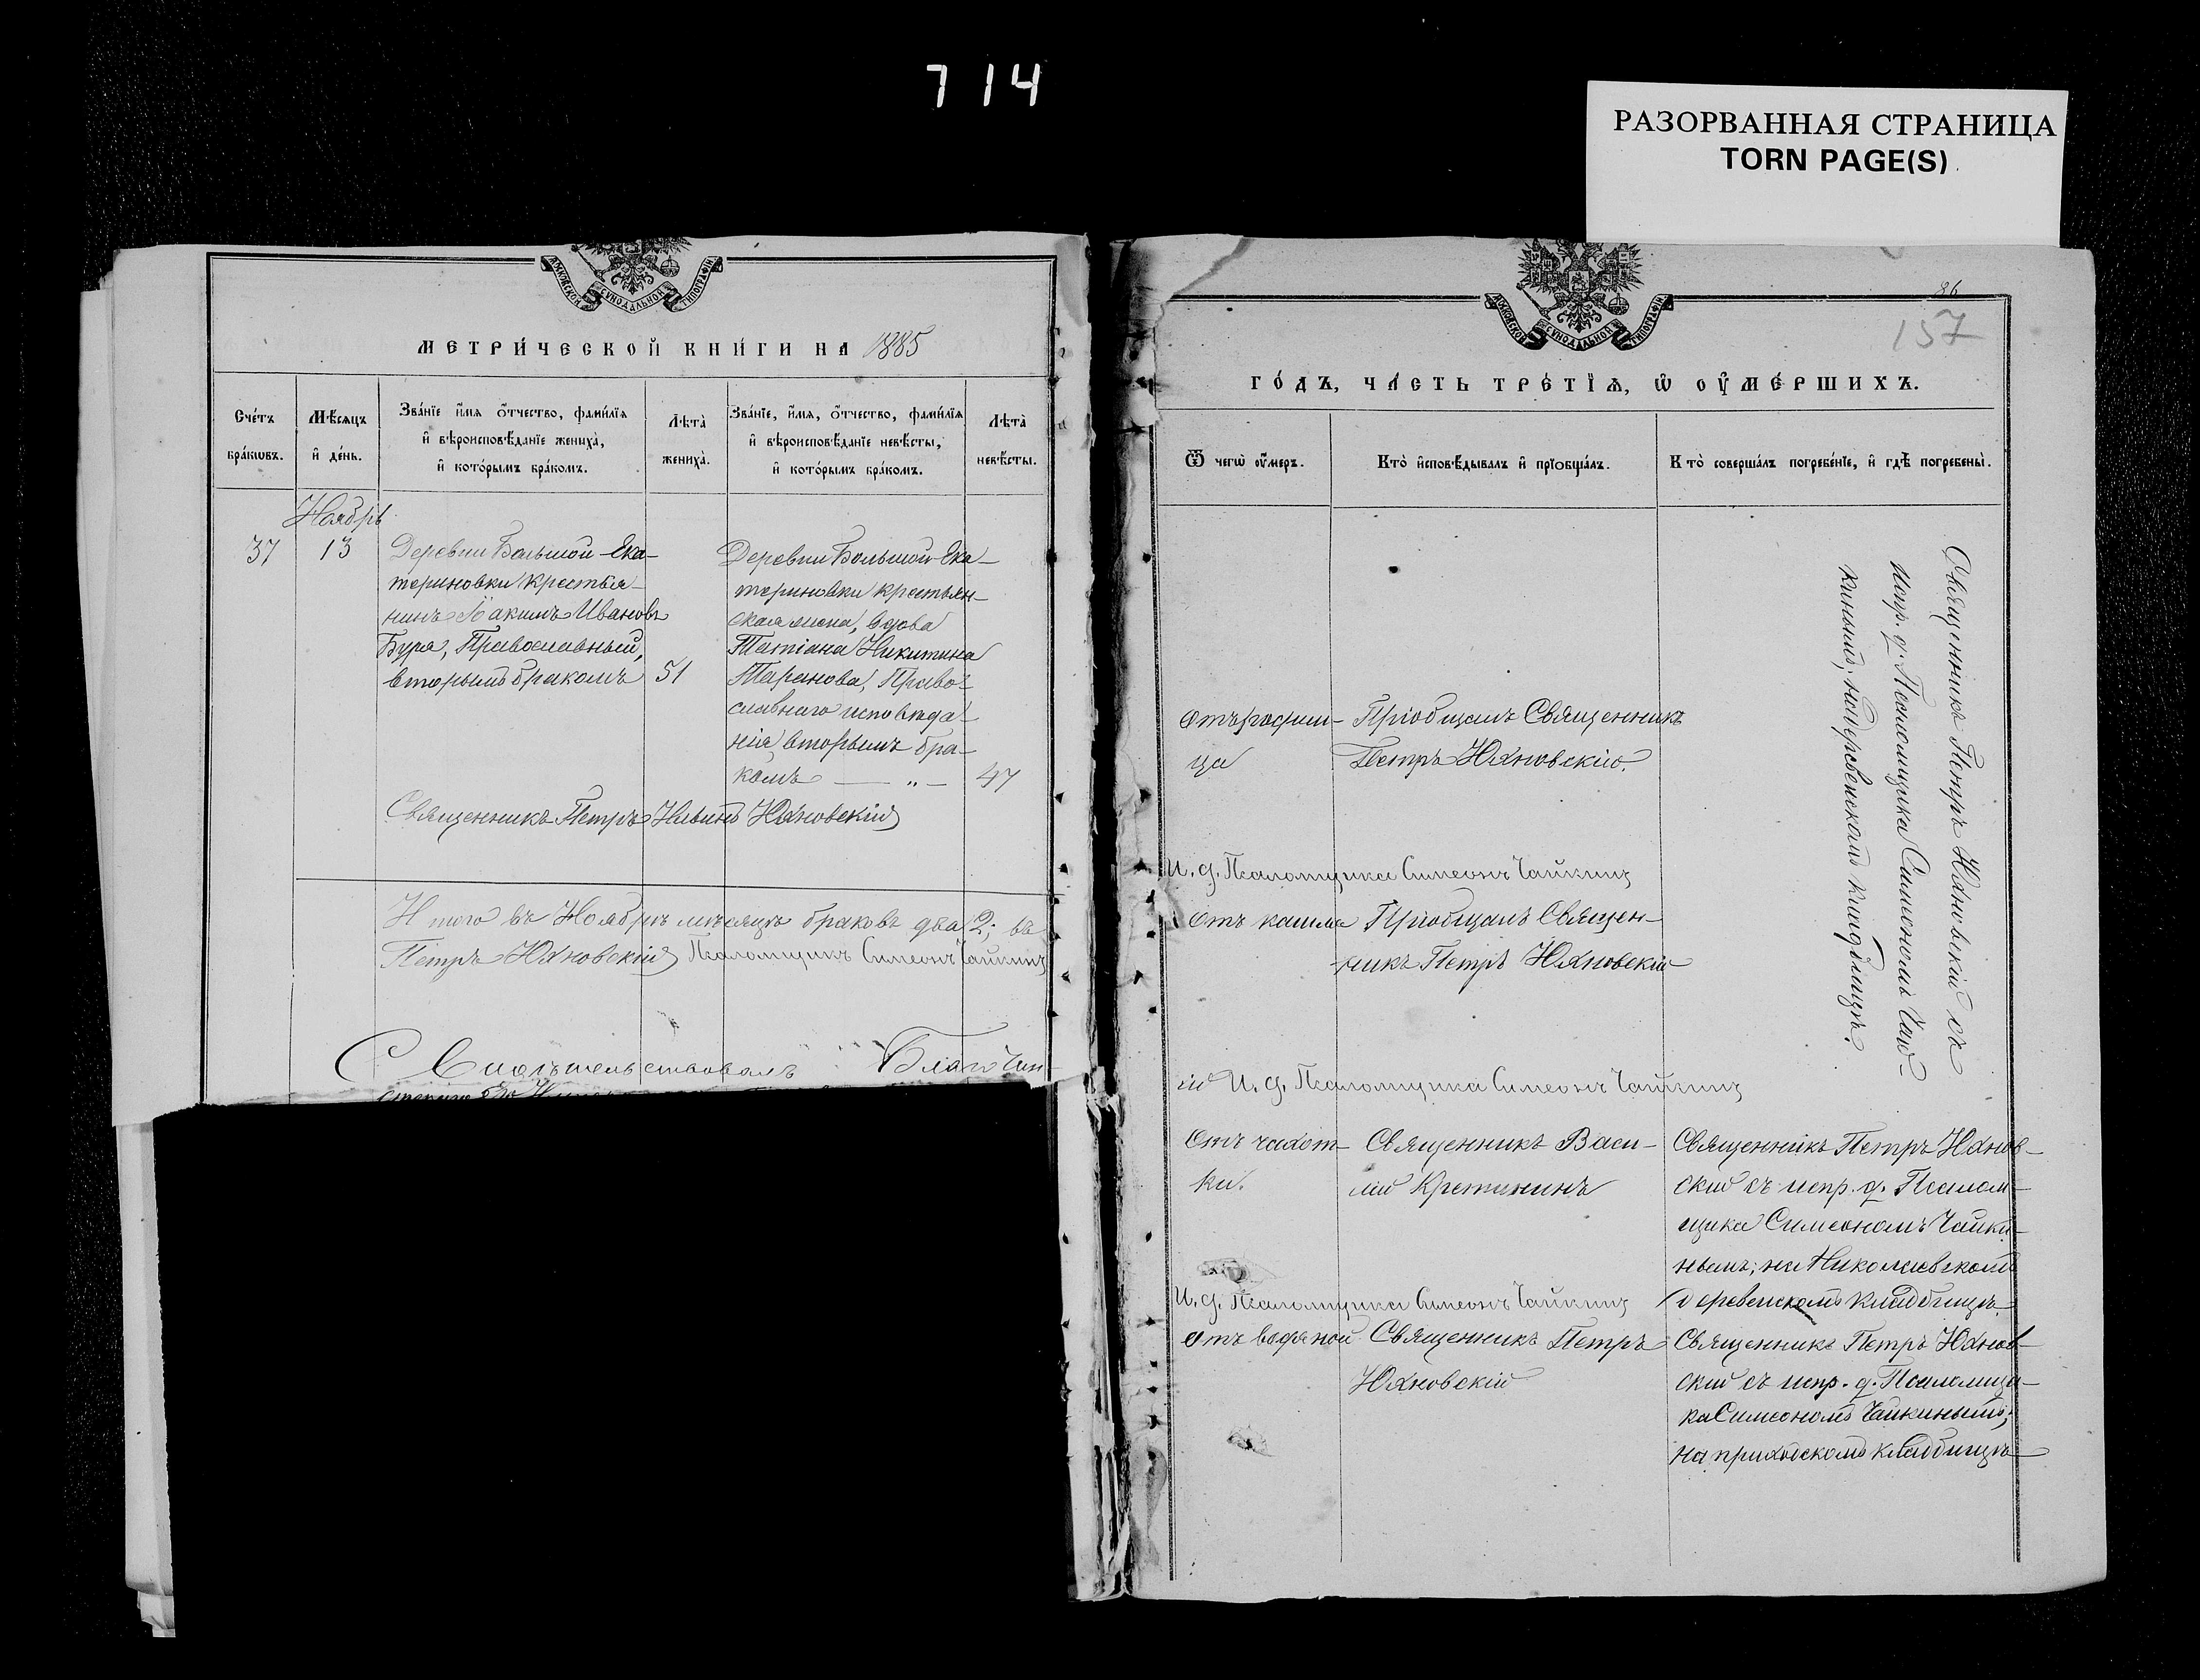 7 14
РАЗОРВАННАЯ СТРАНИЦА
TORN PAGE(S)
МОСКОВСКОЙ СѴНОДАЛЬНОЙ ТИПОГРАФІИ
МЕТРИ́ЧЕСКОЙ КНИ́ГИ НА 1885
Сче́тъ бра́кѡвъ.
Мѣ́сяцъ и҆ де́нь.
Зва́нїе и҆́мя ѻ҆́тчество, фами́лїя
и҆ вѣроисповѣ́данїе жениха̀,
и҆ кото́рымъ бра́комъ.
Лѣта̀ жениха̀.
Зва́нїе, и҆́мя, ѻ҆́тчество, фами́лїя
и҆ вѣроисповѣ́данїе невѣ́сты,
и҆ кото́рымъ бра́комъ.
Лѣта̀ невѣ́сты.
Ноябрь
37
13
Деревни Большой-Ека-
териновки крестья-
нинъ Іакимъ Ивановъ
Бура, Православный,
вторымъ бракомъ
51
Деревни Большой Ека-
териновки крестьян-
ская жена, вдова
Татіана Никитина
Таранова, Право-
славнаго исповѣда-
нія, вторымъ бра-
комъ — „ —
47
Священникъ Петръ Юхновскій
Итого въ Ноябрѣ мѣсяцѣ браковъ два 2; въ
Петръ Юхновскій Псаломщикъ Симеонъ Чайкинъ
Свидѣтельствовалъ Благочин-
МОСКОВСКОЙ СѴНОДАЛЬНОЙ ТИПОГРАФІИ
86
157
ГО́ДЪ, ЧА́СТЬ ТРЕ́ТЇѦ, Ѡ҆ ОУ҆МЕ́РШИХЪ.
Ѿ чегѡ̀ оу҆́меръ.
Кто̀ и҆сповѣ́дывалъ и҆ прїѡбща́лъ.
Кто̀ соверша́лъ погребе́нїе, и҆ гдѣ̀ погребены̀.
Отъ родим-
ца
Пріобщалъ Священникъ
Петръ Юхновскій.
И. д. Псаломщика Симеонъ Чайкинъ
Отъ кашля
Пріобщалъ Священ-
никъ Петръ Юхновскій
Священникъ Петръ Юхновскій съ
испр. д. Псаломщика Симеономъ Чай-
кинымъ; на деревенскомъ кладбищѣ.
И. д. Псаломщика Симеонъ Чайкинъ
Отъ чахот-
ки.
Священникъ Васи-
лій Кретининъ
Священникъ Петръ Юхнов-
скій съ испр. д. Псалом-
щика Симеономъ Чайки-
нымъ; на Николаевскомъ
деревенскомъ кладбищѣ
И. д. Псаломщика Симеонъ Чайкинъ
Отъ водяной
Священникъ Петръ
Юхновскій
Священникъ Петръ Юхнов-
скій съ испр. д. Псаломщи-
ка Симеономъ Чайкинымъ;
на приходскомъ кладбищѣ